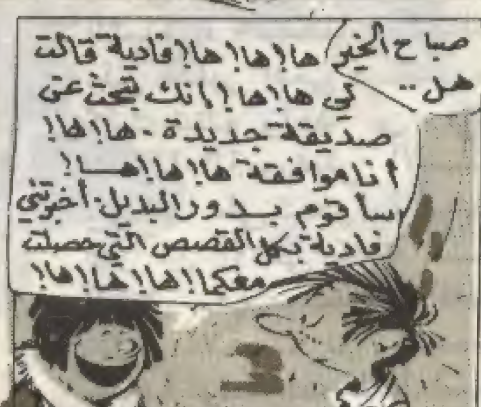 صباح الخير
هل ..
ها!ها!ها!فادية قالت
لي ها!ها! انك تبحث عن
صديقة جديدة . ها!ها!
أنا موافقة ها!ها!ها!
سأقوم بدور البديل. أخبرتني
فادية بكل القصص التي حصلت
معكما!ها!ها!ها!